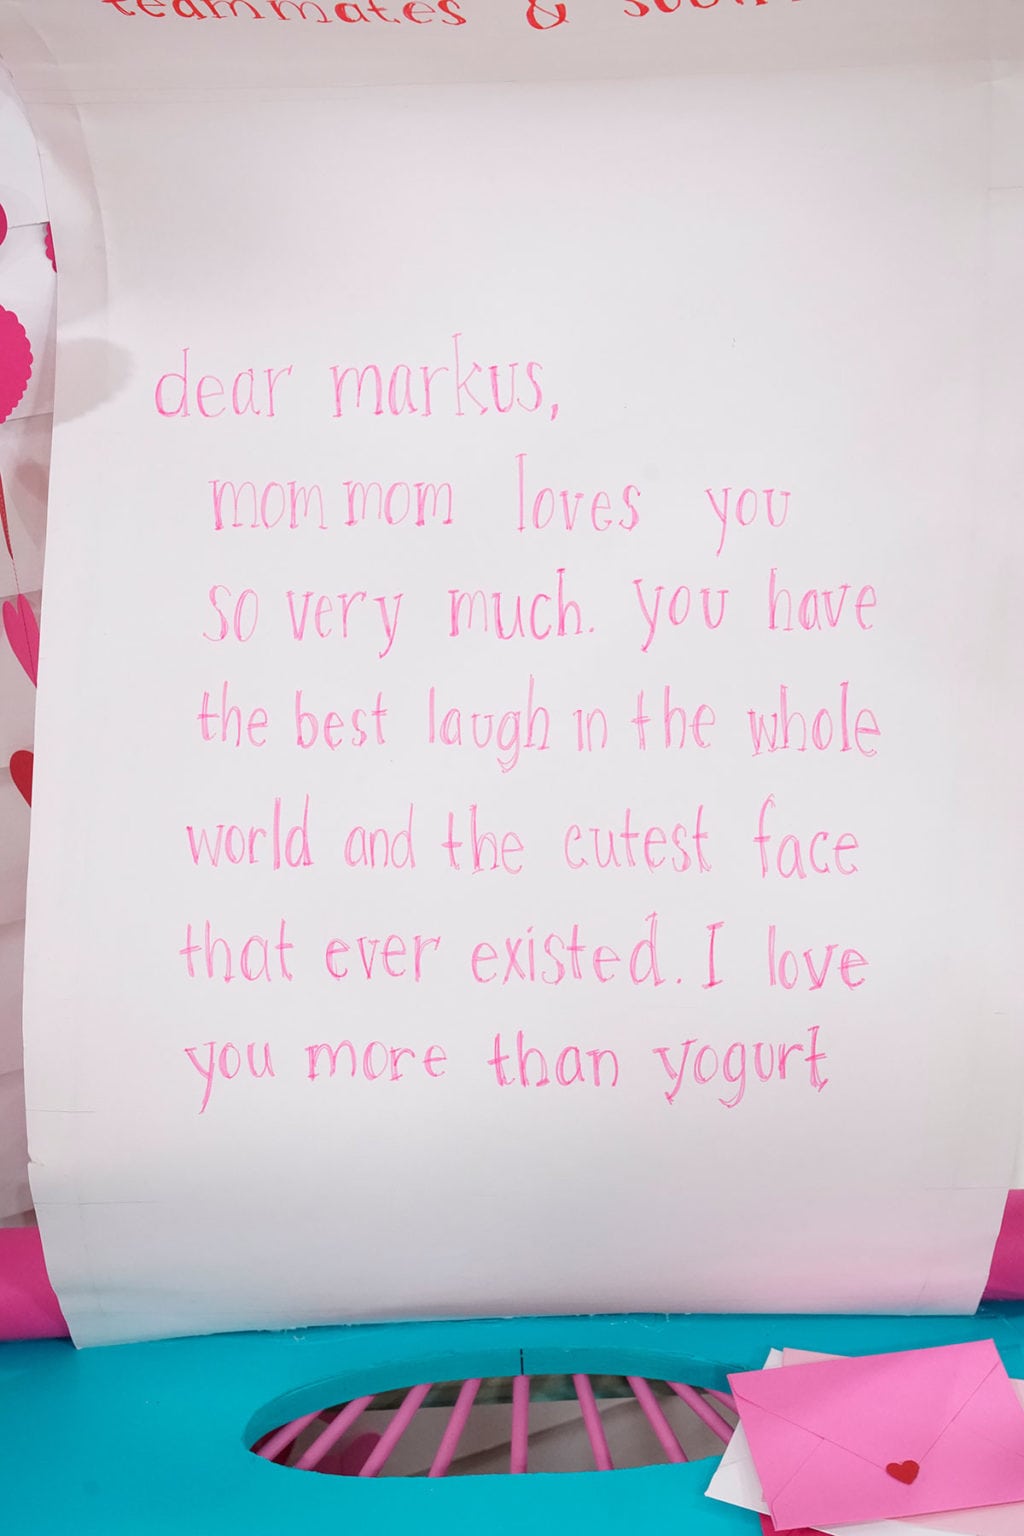 teammates &
dear markus,
mommom loves you
so very much. you have
the best laugh in the whole
world and the cutest face
that ever existed. I love
you more than yogurt